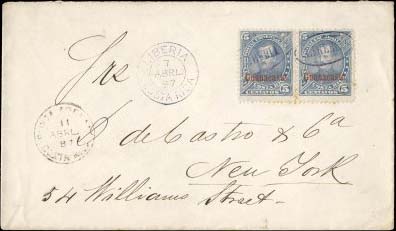 LIBERIA
7
ABRL.
87
COSTA RICA
5 5
Guanacaste Guanacaste
CENTAVOS CENTAVOS
Srs
11
ABRL.
87
COSTA RICA
De Castro & Ca
New York
54 Williams Street.